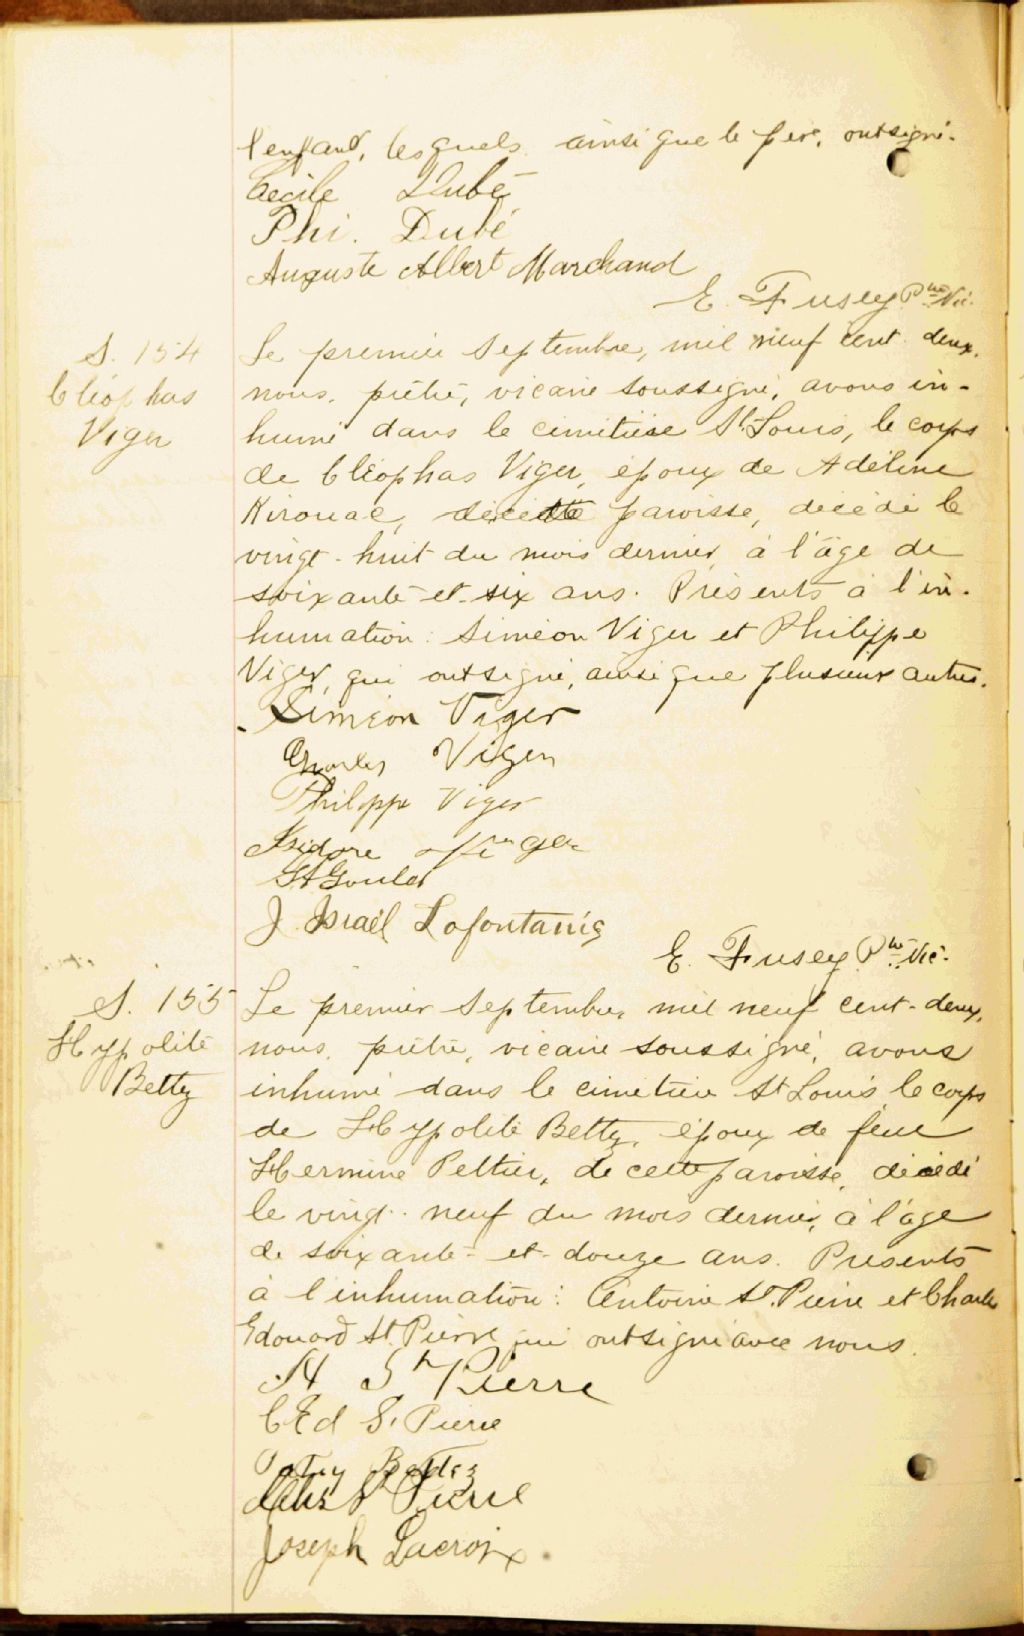 l'enfant, lesquels ainsi que le père, ont signé.
Cécile Dubé
Phi. Dubé
Auguste Albert Marchand
E. Fusey Ptre Vic.
S. 154
Cléophas
Viger
Le premier Septembre, mil neuf cent deux,
nous, prêtre, vicaire soussigné, avons in-
humé dans le cimetière St. Louis, le corps
de Cléophas Viger, époux de Adéline
Kirouac, de cette paroisse, décédé le
vingt-huit du mois dernier, à l'âge de
soixante-et-six ans. Présents à l'in-
humation: Siméon Viger et Philippe
Viger, qui ont signé, ainsi que plusieurs autres.
Siméon Viger
Charles Viger
Philippe Viger
Isidore Viger
Goulet
J. Israël Lafontaine
E. Fusey Ptre Vic.
S. 155
Hypolite
Bettez
Le premier Septembre, mil neuf cent-deux,
nous, prêtre, vicaire soussigné, avons
inhumé dans le cimetière St Louis le corps
de Hypolite Bettez, époux de feue
Hermine Peltier, de cette paroisse, décédé
le vingt-neuf du mois dernier, à l'âge
de soixante-et-douze ans. Présents
à l'inhumation: Antoine St. Pierre et Charles
Edouard St. Pierre qui ont signé avec nous.
A St Pierre
C Ed St Pierre
Bettez
St Pierre
Joseph Lacroix